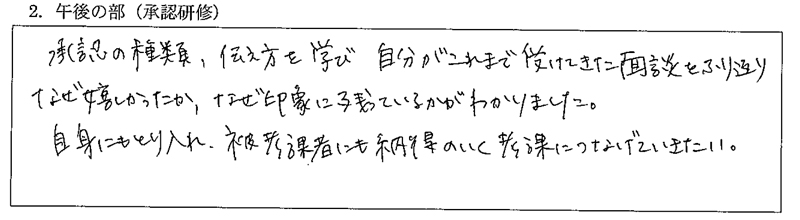 2. 午後の部（承認研修）
承認の種類、伝え方を学び 自分がこれまで受けてきた面談をふり返り
なぜ嬉しかったか、なぜ印象に残っているかがわかりました。
自身にもとり入れ、被考課者にも納得のいく考課につなげていきたい。